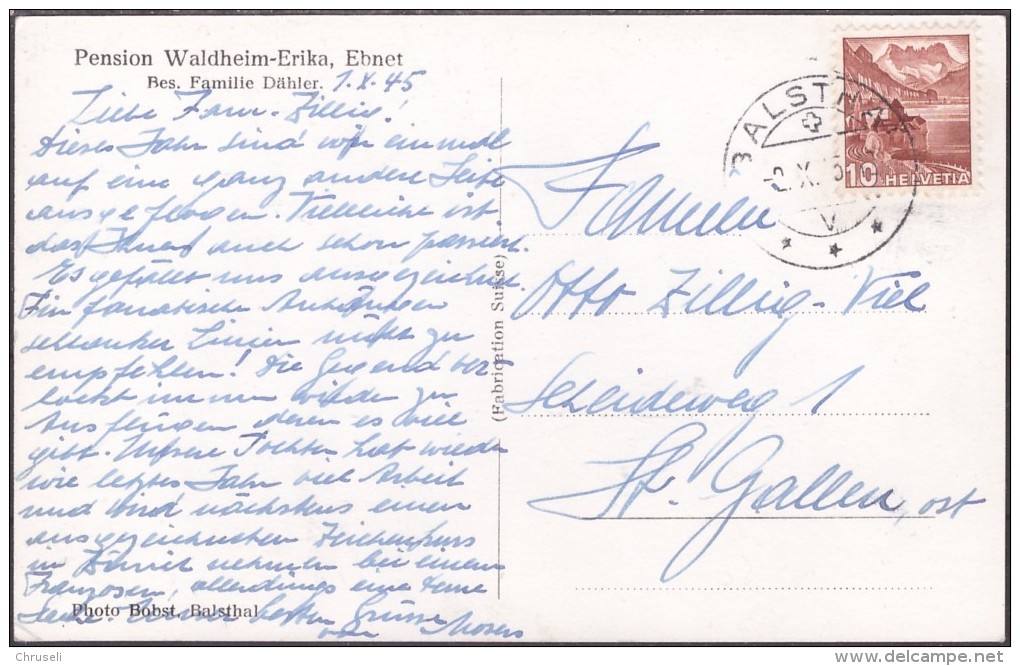 Pension Waldheim-Erika, Ebnet
Bes. Familie Dähler. 1.X.45
Liebe Frau Zillig!
Dieses Jahr sind wir einmal
auf eine ganz andere Seite
ausgeflogen. Vielleicht ist
das Ihnen auch schon passiert.
Es gefällt uns ausgezeichnet.
Für fanatische Anhänger
schlanker Linien nicht zu
empfehlen! Die Gegend ver-
lockt immer wieder zu
Ausflügen deren es viel
gibt. Unsere Tochter hat wieder
wie letztes Jahr viel Arbeit
und wird nächstens einen
ausgezeichneten Zeichenkurs
in Zürich nehmen bei einem
Franzosen, allerdings eine teure
Sache. Ihnen besten Grüsse
von Mosers
Photo Bobst, Balsthal
(Fabrication Suisse)
BALSTHAL
2. X.
V
10 HELVETIA
Familie
Otto Zillig-Viel
Scheideweg 1
St. Gallen, ost
© Chruseli
www.delcampe.net